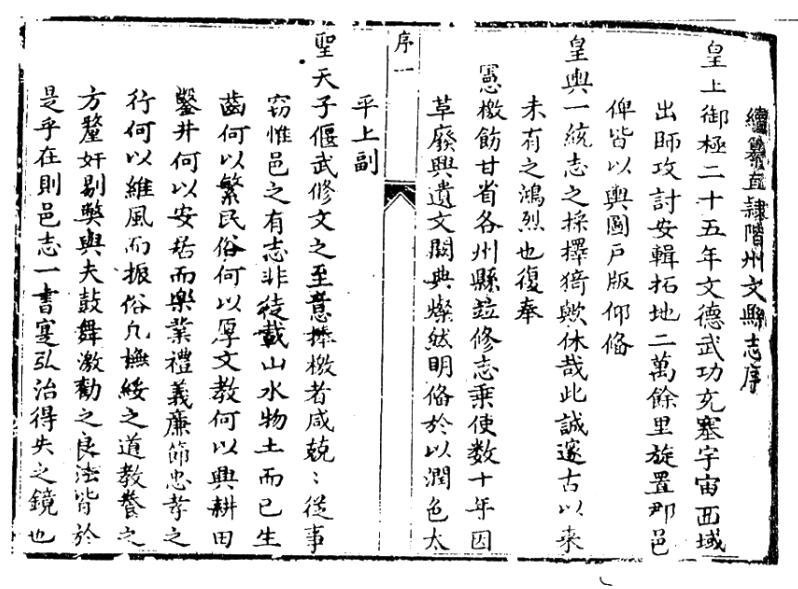 續纂直隸階州文縣志序
皇上御極二十五年文德武功充塞宇宙西域
出師攻討安輯拓地二萬餘里旋置郡邑
俾皆以輿圖戶版仰偹
皇輿一統志之採擇猗歟休哉此誠邃古以来
未有之鴻烈也復奉
憲檄飭甘省各州縣竝修志乗使数十年因
草廢興遺文闕典燦然明偹於以潤色太
序一
平上副
聖天子偃武修文之至意捧檄者咸兢〻從事
窃惟邑之有志非徒載山水物土而已生
齒何以繁民俗何以厚文教何以興耕田
鑿井何以安居而樂業禮義廉節忠孝之
行何以維風而振俗凡撫綏之道教養之
方釐奸剔獘與夫鼓舞激勸之良法皆於
是乎在則邑志一書寔弘治得失之鏡也